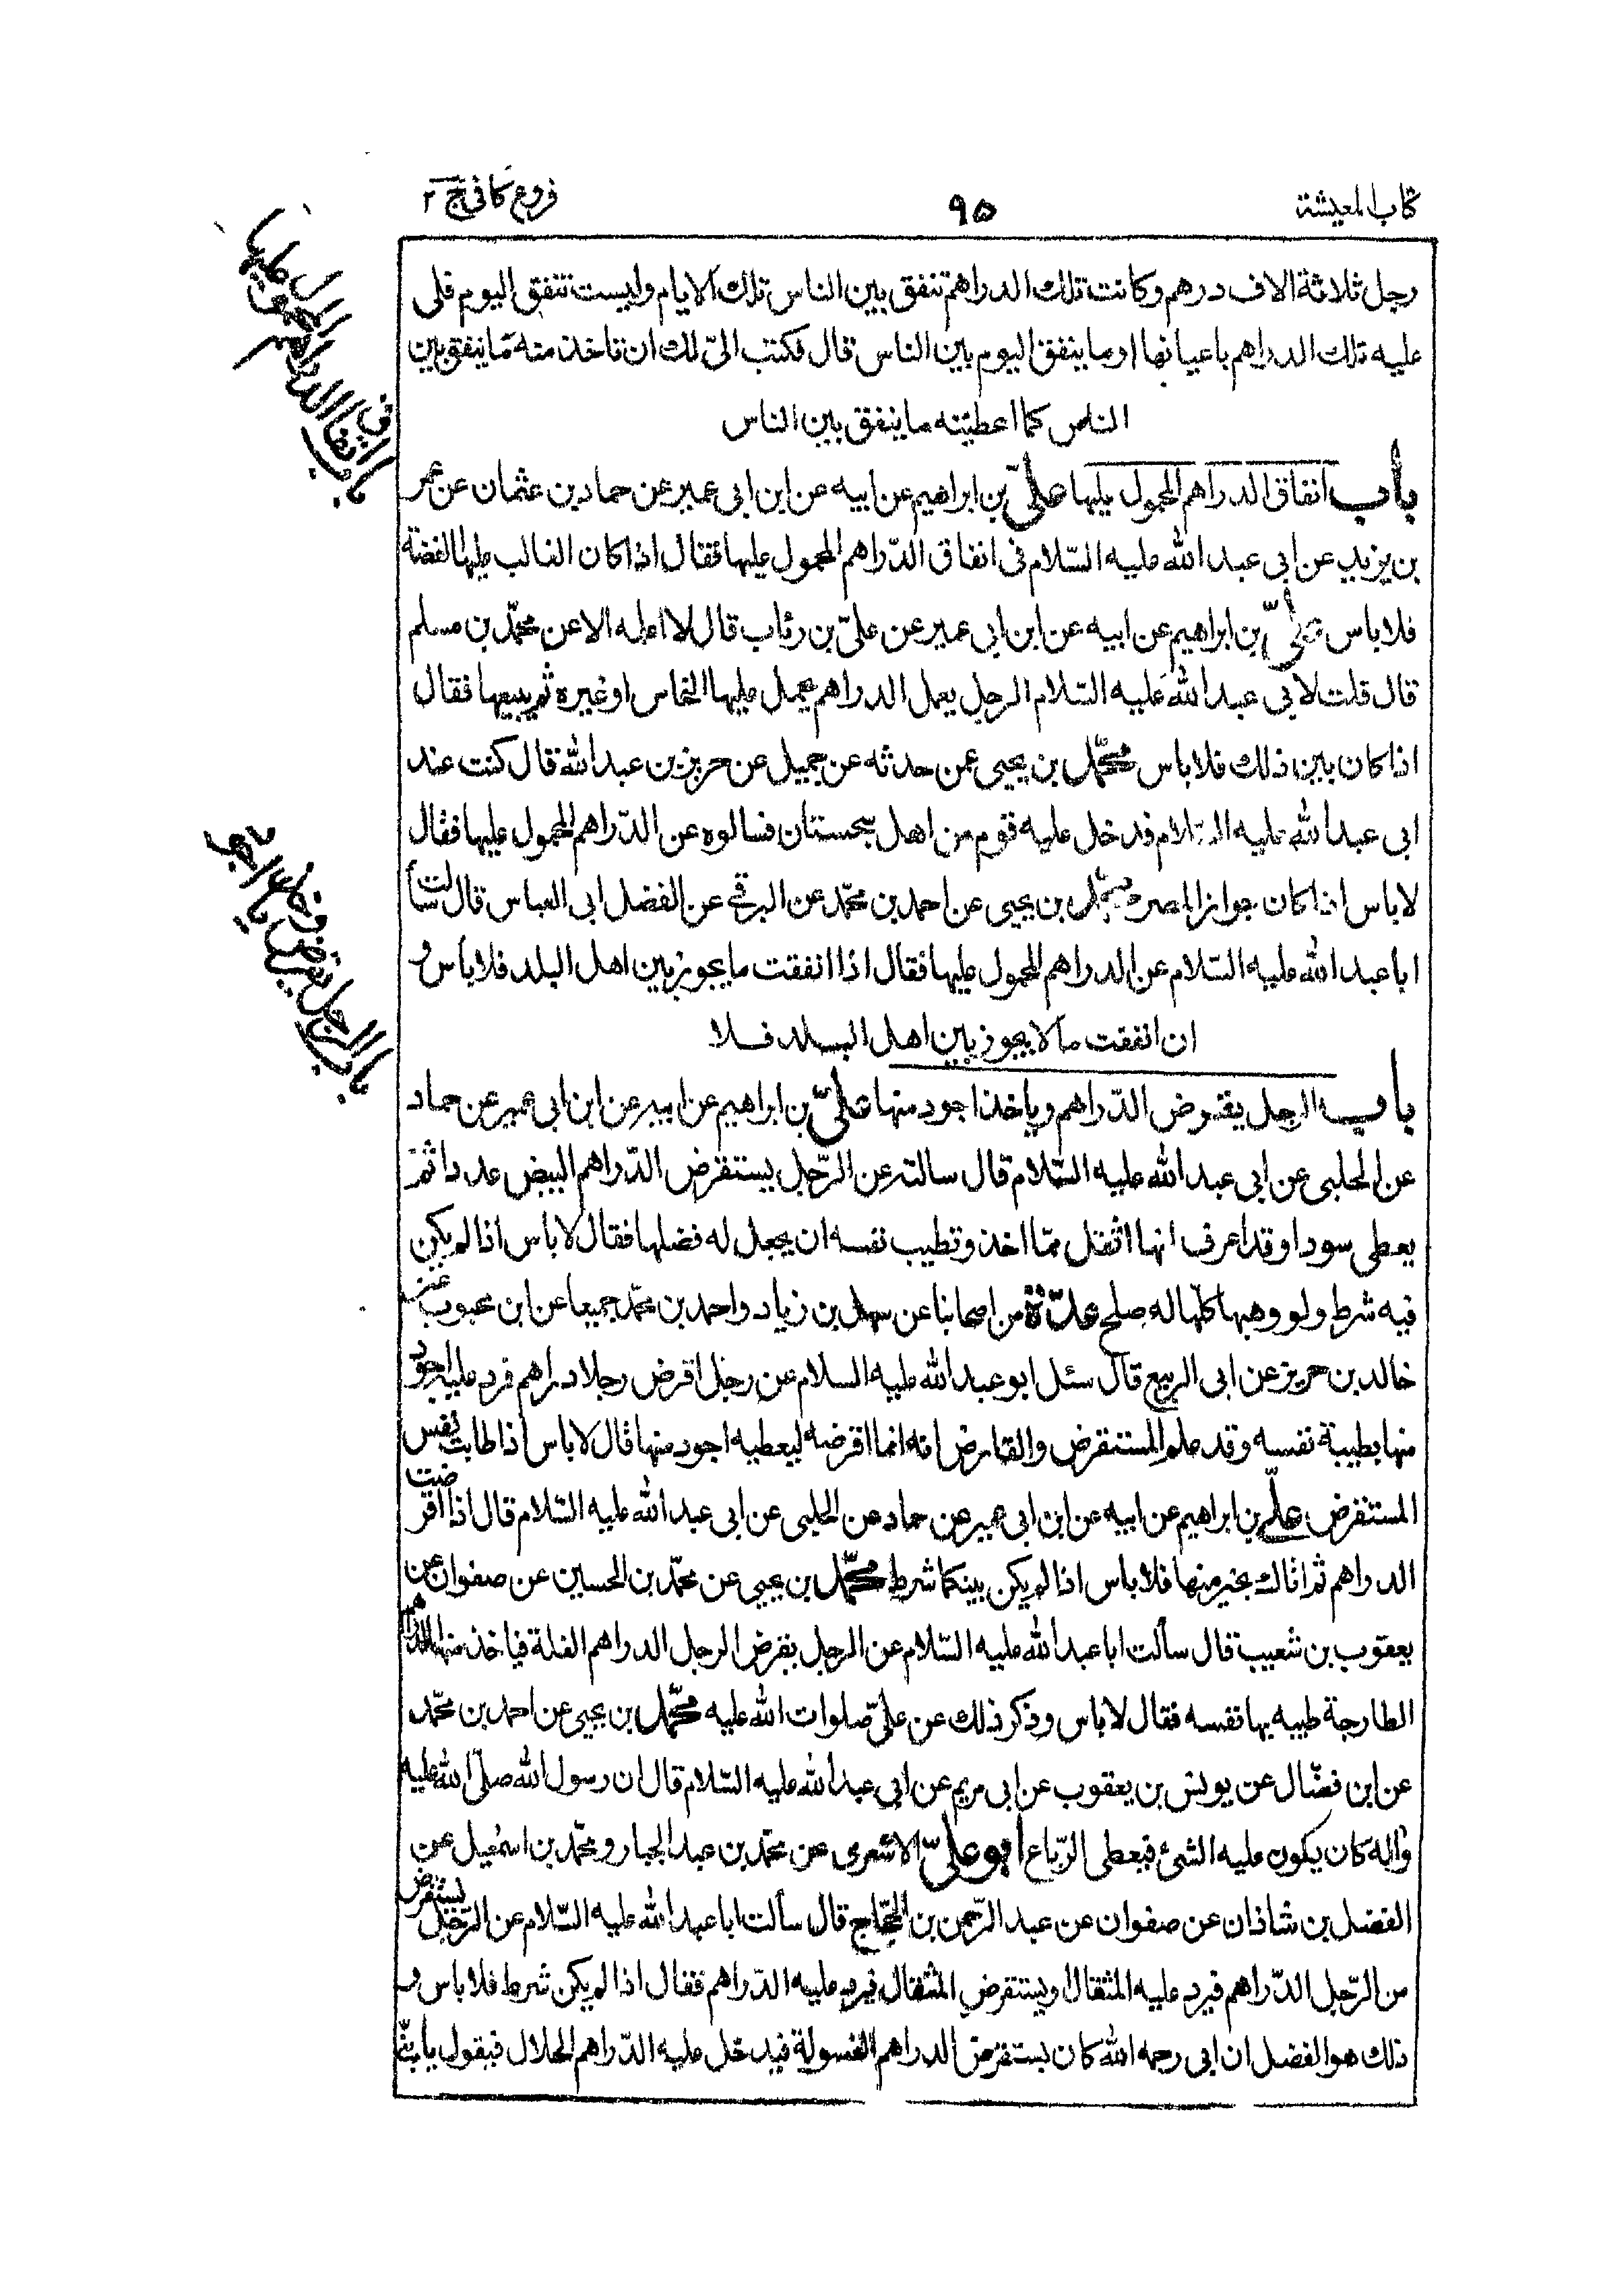 كتاب المعيشة
٩٥
فروع كافي ج ٢
رجل ثلاثة الاف درهم وكانت تلك الدراهم تنفق بين الناس تلك الايام وليست تنفق اليوم فلي
عليه تلك الدراهم باعيانها او ما ينفق اليوم بين الناس قال فكتب الىّ لك ان تاخذ منه ما ينفق بين
الناس كما اعطيته ما ينفق بين الناس
باب انفاق الدراهم المحمول عليها علىّ بن ابراهيم عن ابيه عن ابن ابى عمير عن حماد بن عثمان عن عمر
بن يزيد عن ابى عبد الله عليه السّلام فى انفاق الدّراهم المحمول عليها فقال اذا كان الغالب عليها الفضة
فلا باس علىّ بن ابراهيم عن ابيه عن ابن ابى عمير عن علىّ بن رئاب قال لا اعلمه الا عن محمّد بن مسلم
قال قلت لابى عبد الله عليه السّلام الرجل يعمل الدراهم يحمل عليها النحاس او غيره ثم يبيعها فقال
اذا كان بين ذلك فلا باس محمّد بن يحيى عمن حدثه عن جميل عن حريز بن عبد الله قال كنت عند
ابى عبد الله عليه السّلام فدخل عليه قوم من اهل سجستان فسالوه عن الدّراهم المحمول عليها فقال
لا باس اذا كان جواز المصر محمّد بن يحيى عن احمد بن محمّد عن البرقى عن الفضل ابى العباس قال سألت
ابا عبد الله عليه السّلام عن الدراهم المحمول عليها فقال اذا انفقت ما يجوز بين اهل البلد فلا بأس و
ان انفقت ما لا يجوز بين اهل البلد فلا
باب الرجل يقرض الدّراهم وياخذ اجود منها علىّ بن ابراهيم عن ابيه عن ابن ابى عمير عن حماد
عن الحلبى عن ابى عبد الله عليه السّلام قال سالته عن الرّجل يستقرض الدّراهم البيض عددا ثمّ
يعطى سودا وقد اعرف انها اثقل ممّا اخذ وتطيب نفسه ان يجعل له فضلها فقال لا باس اذا لم يكن
فيه شرط ولو وهبها كلها له صلح عدّة من اصحابنا عن سهل بن زياد واحمد بن محمّد جميعا عن ابن محبوب عن
خالد بن حريز عن ابى الربيع قال سئل ابو عبد الله عليه السلام عن رجل اقرض رجلا دراهم فرد عليه اجود
منها بطيبة نفسه وقد علم المستقرض والقارض انه انما اقرضه ليعطيه اجود منها قال لا باس اذا طابت نفس
المستقرض علىّ بن ابراهيم عن ابيه عن ابن ابى عمير عن حماد عن الحلبى عن ابى عبد الله عليه السّلام قال اذا اقرضت
الدراهم ثم اتاك بخير منها فلا باس اذا لم يكن بينكما شرط محمّد بن يحيى عن محمّد بن الحسين عن صفوان عن
يعقوب بن شعيب قال سألت ابا عبد الله عليه السّلام عن الرجل يقرض الرجل الدراهم الغلة فياخذ منها الدراهم
الطازجة طيبه بها نفسه فقال لا باس وذكر ذلك عن علىّ صلوات الله عليه محمّد بن يحيى عن احمد بن محمّد
عن ابن فضّال عن يونس بن يعقوب عن ابى مريم عن ابى عبد الله عليه السّلام قال ان رسول الله صلّى الله عليه
واله كان يكون عليه الشئ فيعطى الرّباع ابو علىّ الاشعرى عن محمّد بن عبد الجبار ومحمّد بن اسمعيل عن
الفضل بن شاذان عن صفوان عن عبد الرّحمن بن الحجّاج قال سألت ابا عبد الله عليه السّلام عن الرّجل يستقرض
من الرّجل الدّراهم فيرد عليه المثقال ويستقرض المثقال فيرد عليه الدّراهم فقال اذا لم يكن شرط فلا باس و
ذلك هو الفضل ان ابى رحمه الله كان يستقرض الدراهم الفسولة فيدخل عليه الدّراهم الحلال فيقول يا بنىّ